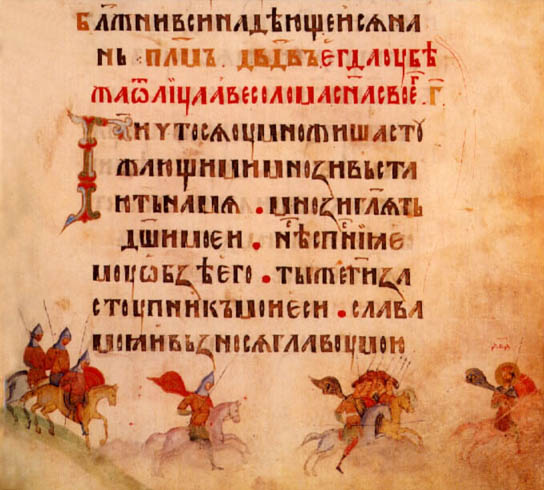 блж҃ни вси надѣющеисѧ на
нь псл҃мъ дв҃двъ егда оубѣ
жа ѿ лица авесолома сн҃а своег҃ . г҃
Ги҃ что сѧ оумножиша сто
ужающии ми мнози въста
ють на мѧ . мнози гл҃ють
дш҃и моеи . нѣ сп҃нїꙗ е
моу ѡ бз҃ѣ его . ты же ги҃ за
стоупникъ мои еси . слава
моꙗ и възносѧ главоу мою